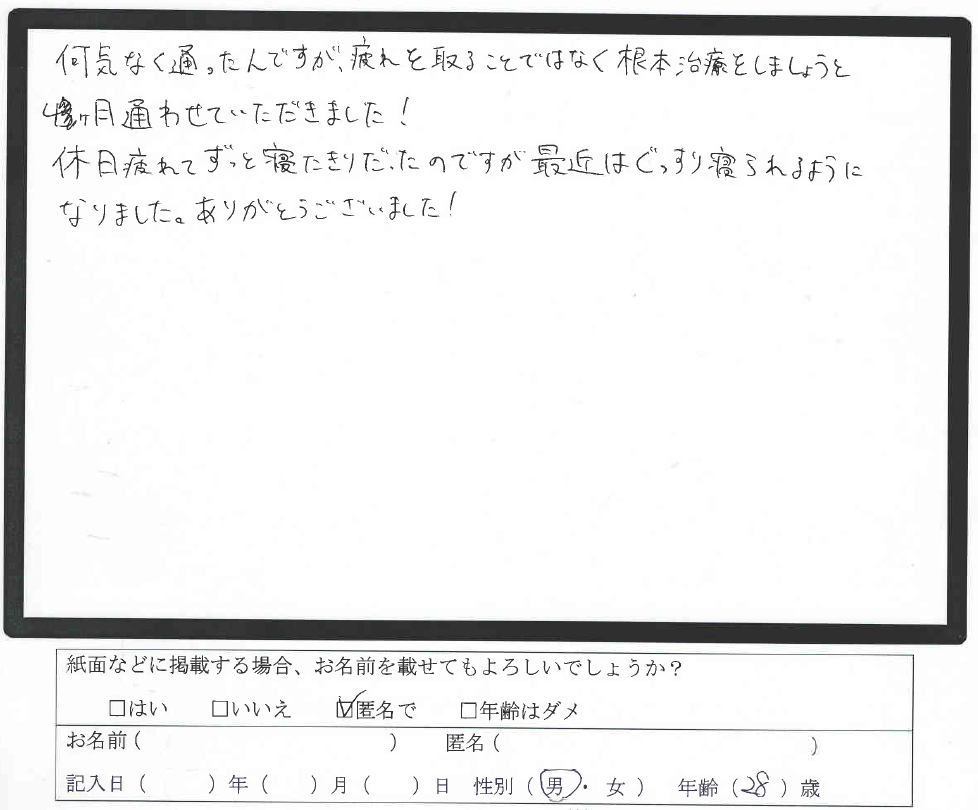 何気なく通ったんですが、疲れを取ることではなく根本治療をしましょうと
4ヶ月通わせていただきました！
休日疲れてずっと寝たきりだったのですが最近はぐっすり寝られるように
なりました。ありがとうございました！
紙面などに掲載する場合、お名前を載せてもよろしいでしょうか？
□はい □いいえ ☑匿名で □年齢はダメ
お名前（ ） 匿名（ ）
記入日（ ）年（ ）月（ ）日 性別（男・女） 年齢（28）歳